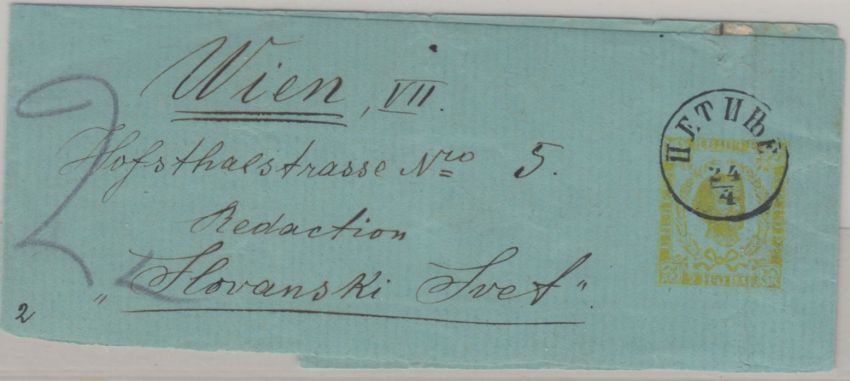 Wien, VII.
Hofsthalstrasse Nro 5.
Redaction
„Slovanski Svet“
2
2
ЦЕТИЊЕ
24
4